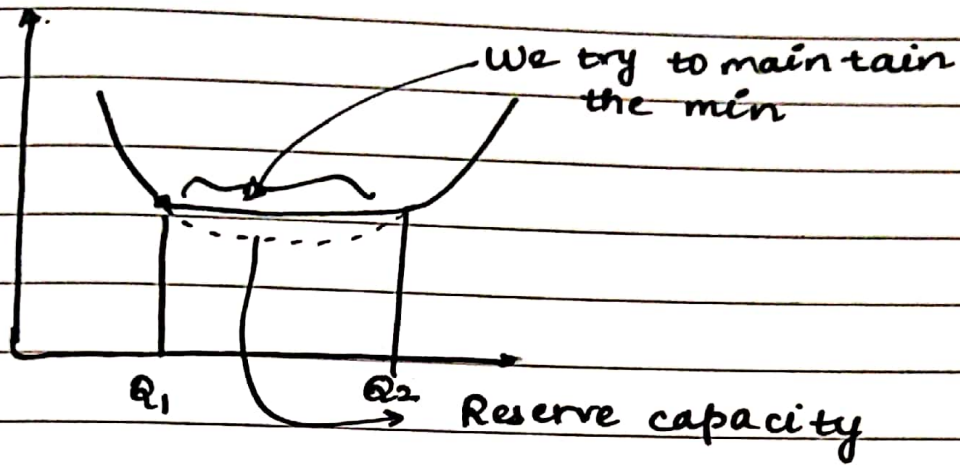 We try to maintain
the min
Q1 Q2
Reserve capacity